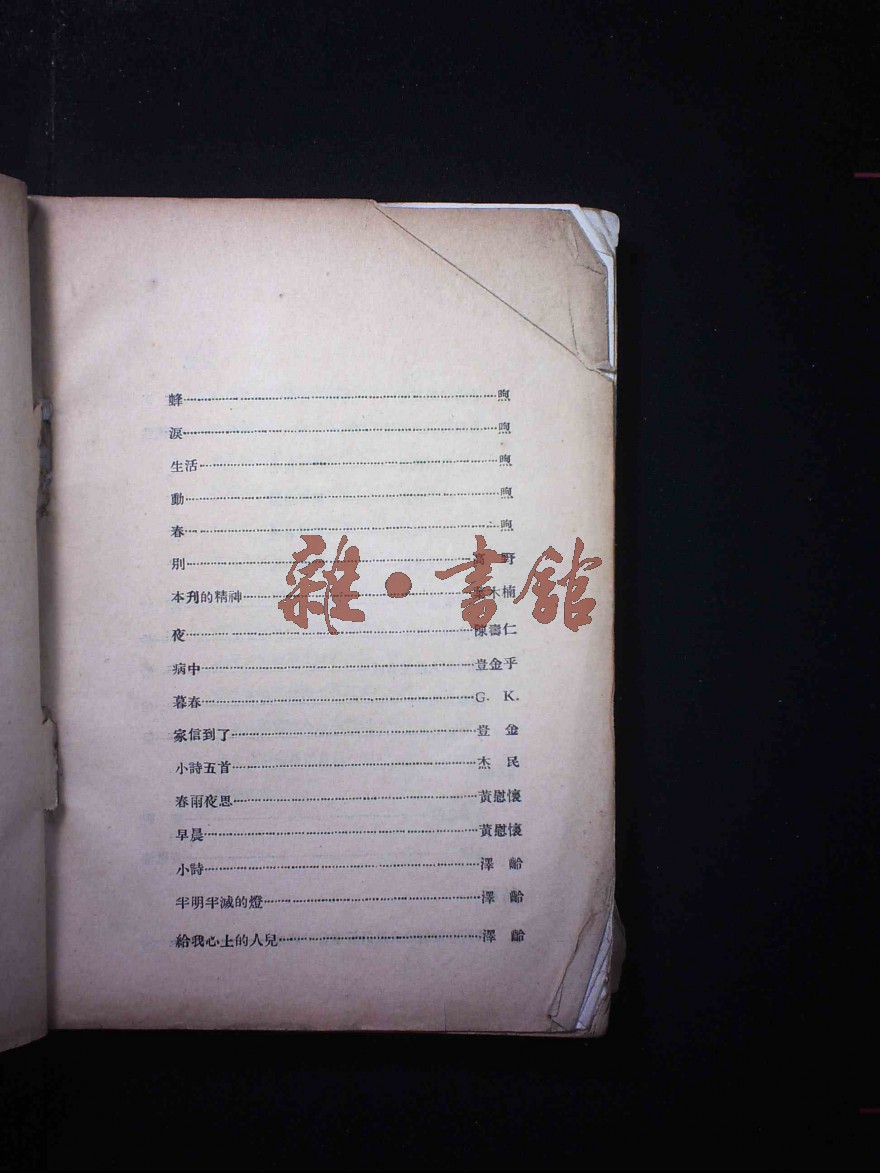 蜂………煦
淚………煦
生活………煦
動………煦
春………煦
別………野
本刋的精神………木楠
夜………陳壽仁
病中………豈金乎
暮春………G. K.
家信到了………豈 金
小詩五首………杰 民
春雨夜思………黃慰懷
早晨………黃慰懷
小詩………澤 齡
半明半滅的燈………澤 齡
給我心上的人兒………澤 齡
雜·書館